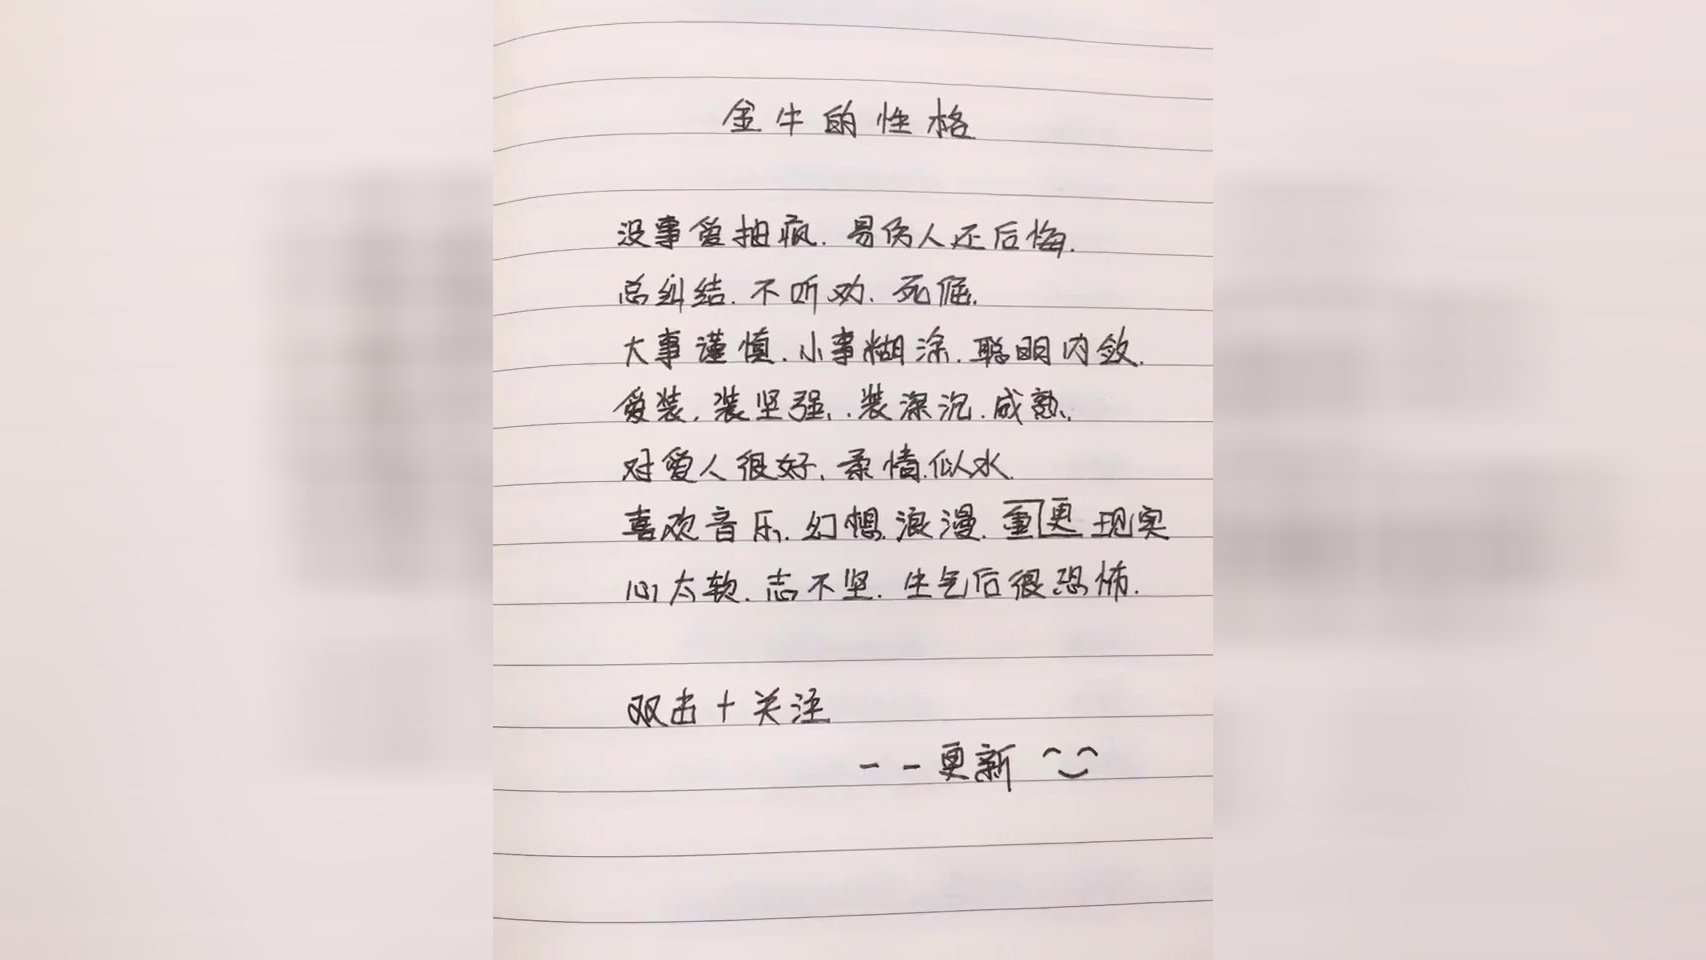 金牛的性格
没事爱抽疯.易伤人还后悔.
总纠结.不听劝.死倔.
大事谨慎.小事糊涂.聪明内敛.
爱装.装坚强.装深沉.成熟.
对爱人很好.柔情似水.
喜欢音乐.幻想.浪漫.重更现实
心太软.志不坚.生气后很恐怖.
双击+关注
--更新